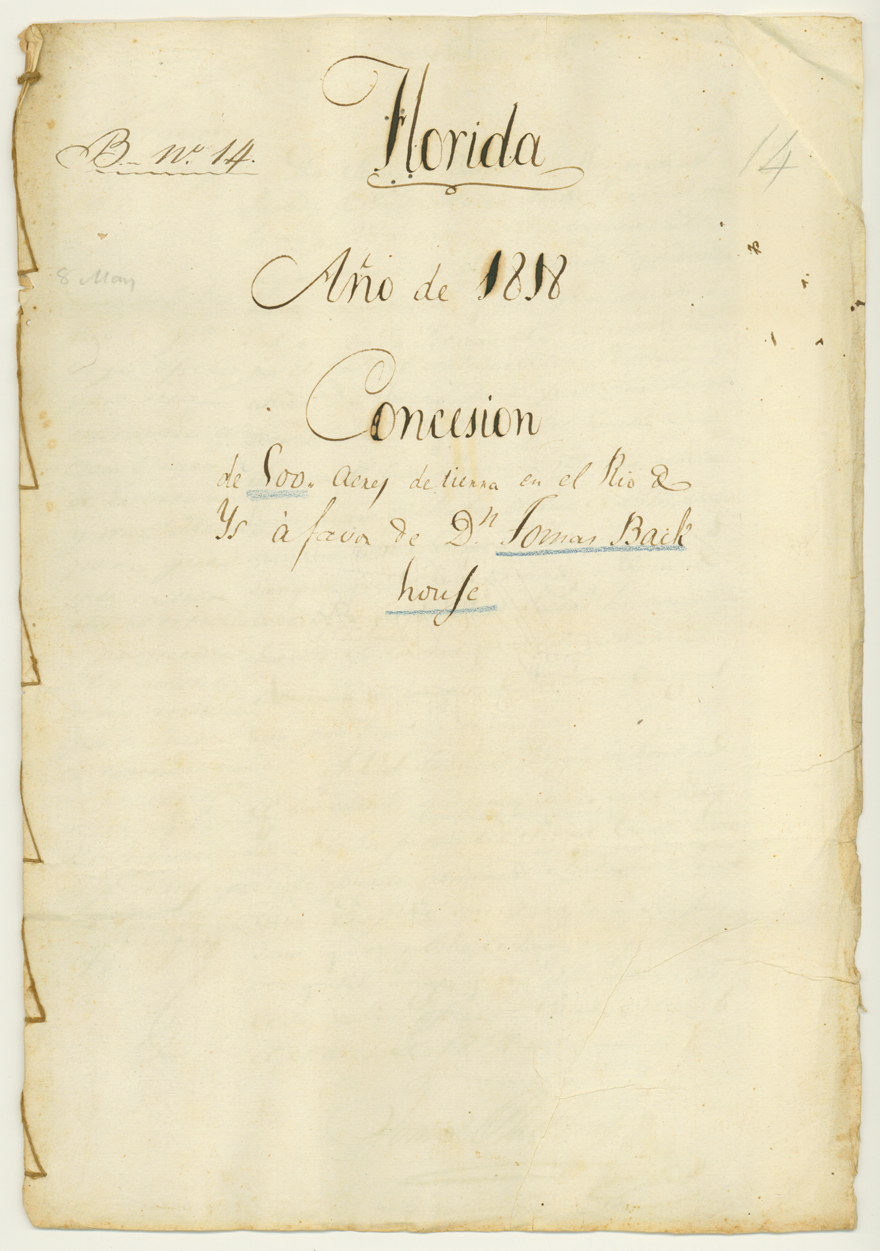 Florida
B. nº 14.
14
Año de 1818
8 May
Concesion
de 500. acres de tierra en el Rio de
Ys à favor de Dⁿ Tomas Back
house